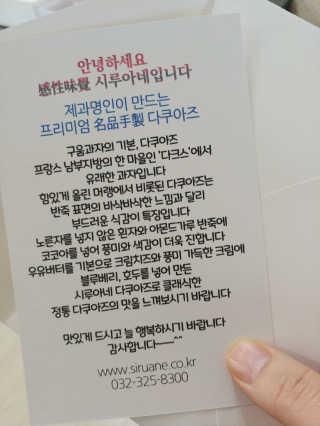 안녕하세요
感性味覺 시루아네입니다
제과명인이 만드는
프리미엄 名品手製 다쿠아즈
구움과자의 기본, 다쿠아즈
프랑스 남부지방의 한 마을인 '다크스'에서
유래한 과자입니다
힘있게 올린 머랭에서 비롯된 다쿠아즈는
반죽 표면의 바삭바삭한 느낌과 달리
부드러운 식감이 특징입니다
노른자를 넣지 않은 흰자와 아몬드가루 반죽에
코코아를 넣어 풍미와 색감이 더욱 진합니다
우유버터를 기본으로 크림치즈와 풍미 가득한 크림에
블루베리, 호두를 넣어 만든
시루아네 다쿠아즈로 클래식한
정통 다쿠아즈의 맛을 느껴보시기 바랍니다
맛있게 드시고 늘 행복하시기 바랍니다
감사합니다~~^^
www.siruane.co.kr
032-325-8300